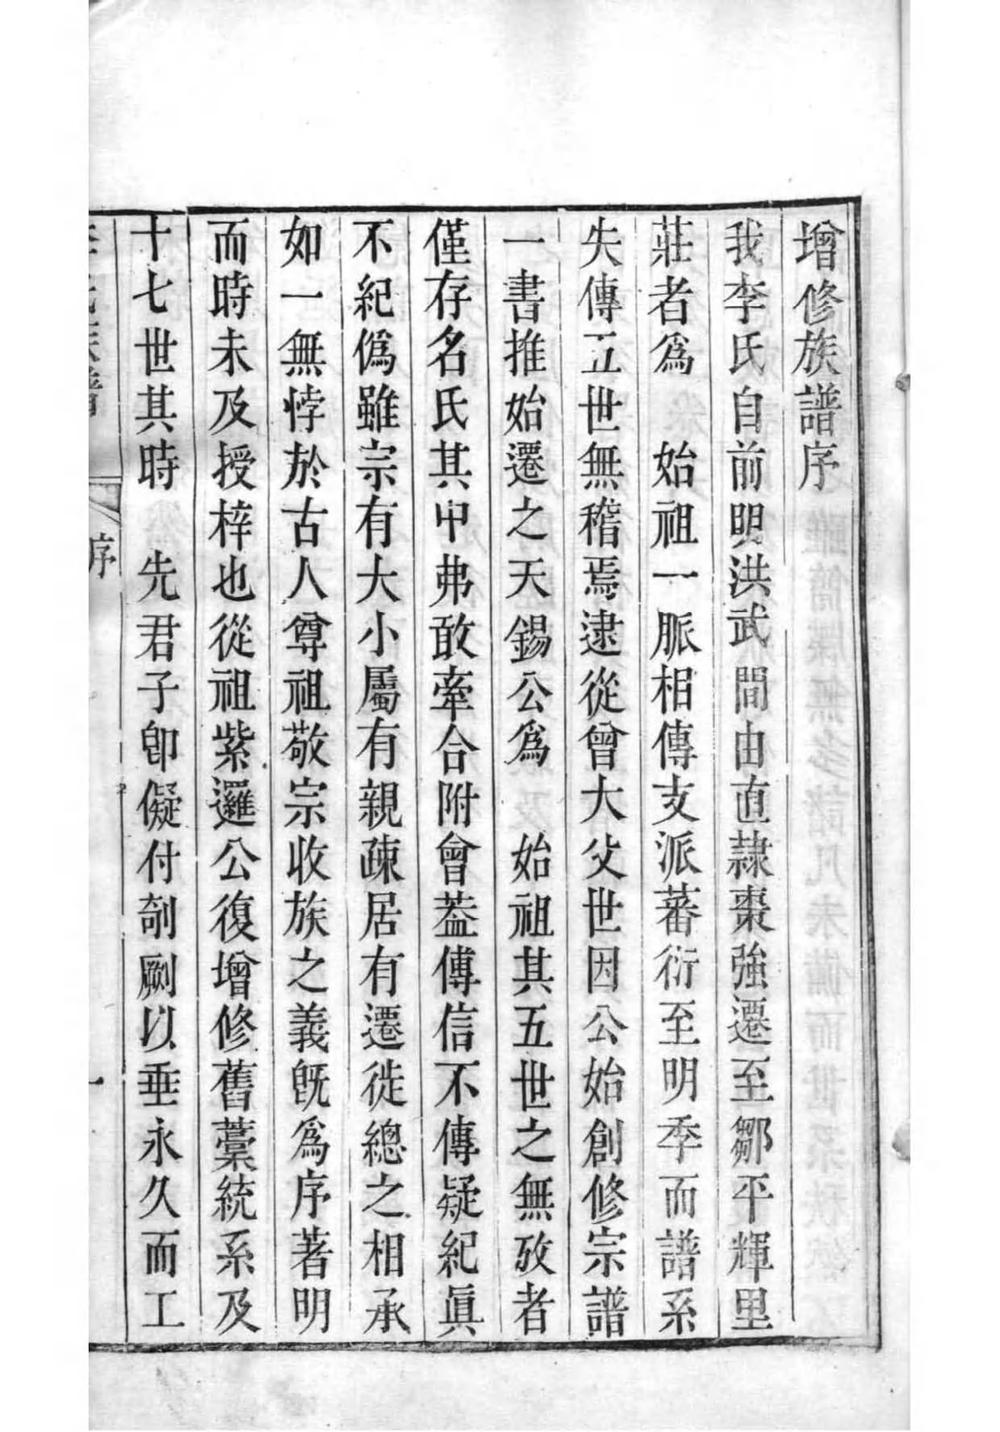 增修族譜序
我李氏自前明洪武間由直隸棗強遷至鄒平輝里
莊者爲　始祖一脈相傳支派蕃衍至明季而譜系
失傳五世無稽焉逮從曾大父世因公始創修宗譜
一書推始遷之天錫公爲　始祖其五世之無攷者
僅存名氏其中弗敢牽合附會葢傳信不傳疑紀眞
不紀僞雖宗有大小屬有親疎居有遷徙總之相承
如一無悖於古人尊祖敬宗收族之義旣爲序著明
而時未及授梓也從祖紫邏公復增修舊藁統系及
十七世其時　先君子卽儗付剞劂以垂永久而工
序
一